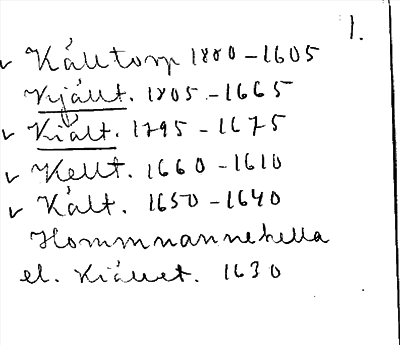 1.
v Kålltorp 1880-1605
Kjállt. 1805-1665
v Kiält. 1795-1675
v Kellt. 1660-1610
v Kált. 1650-1640
Hommnannekella
el. Kiället. 1630